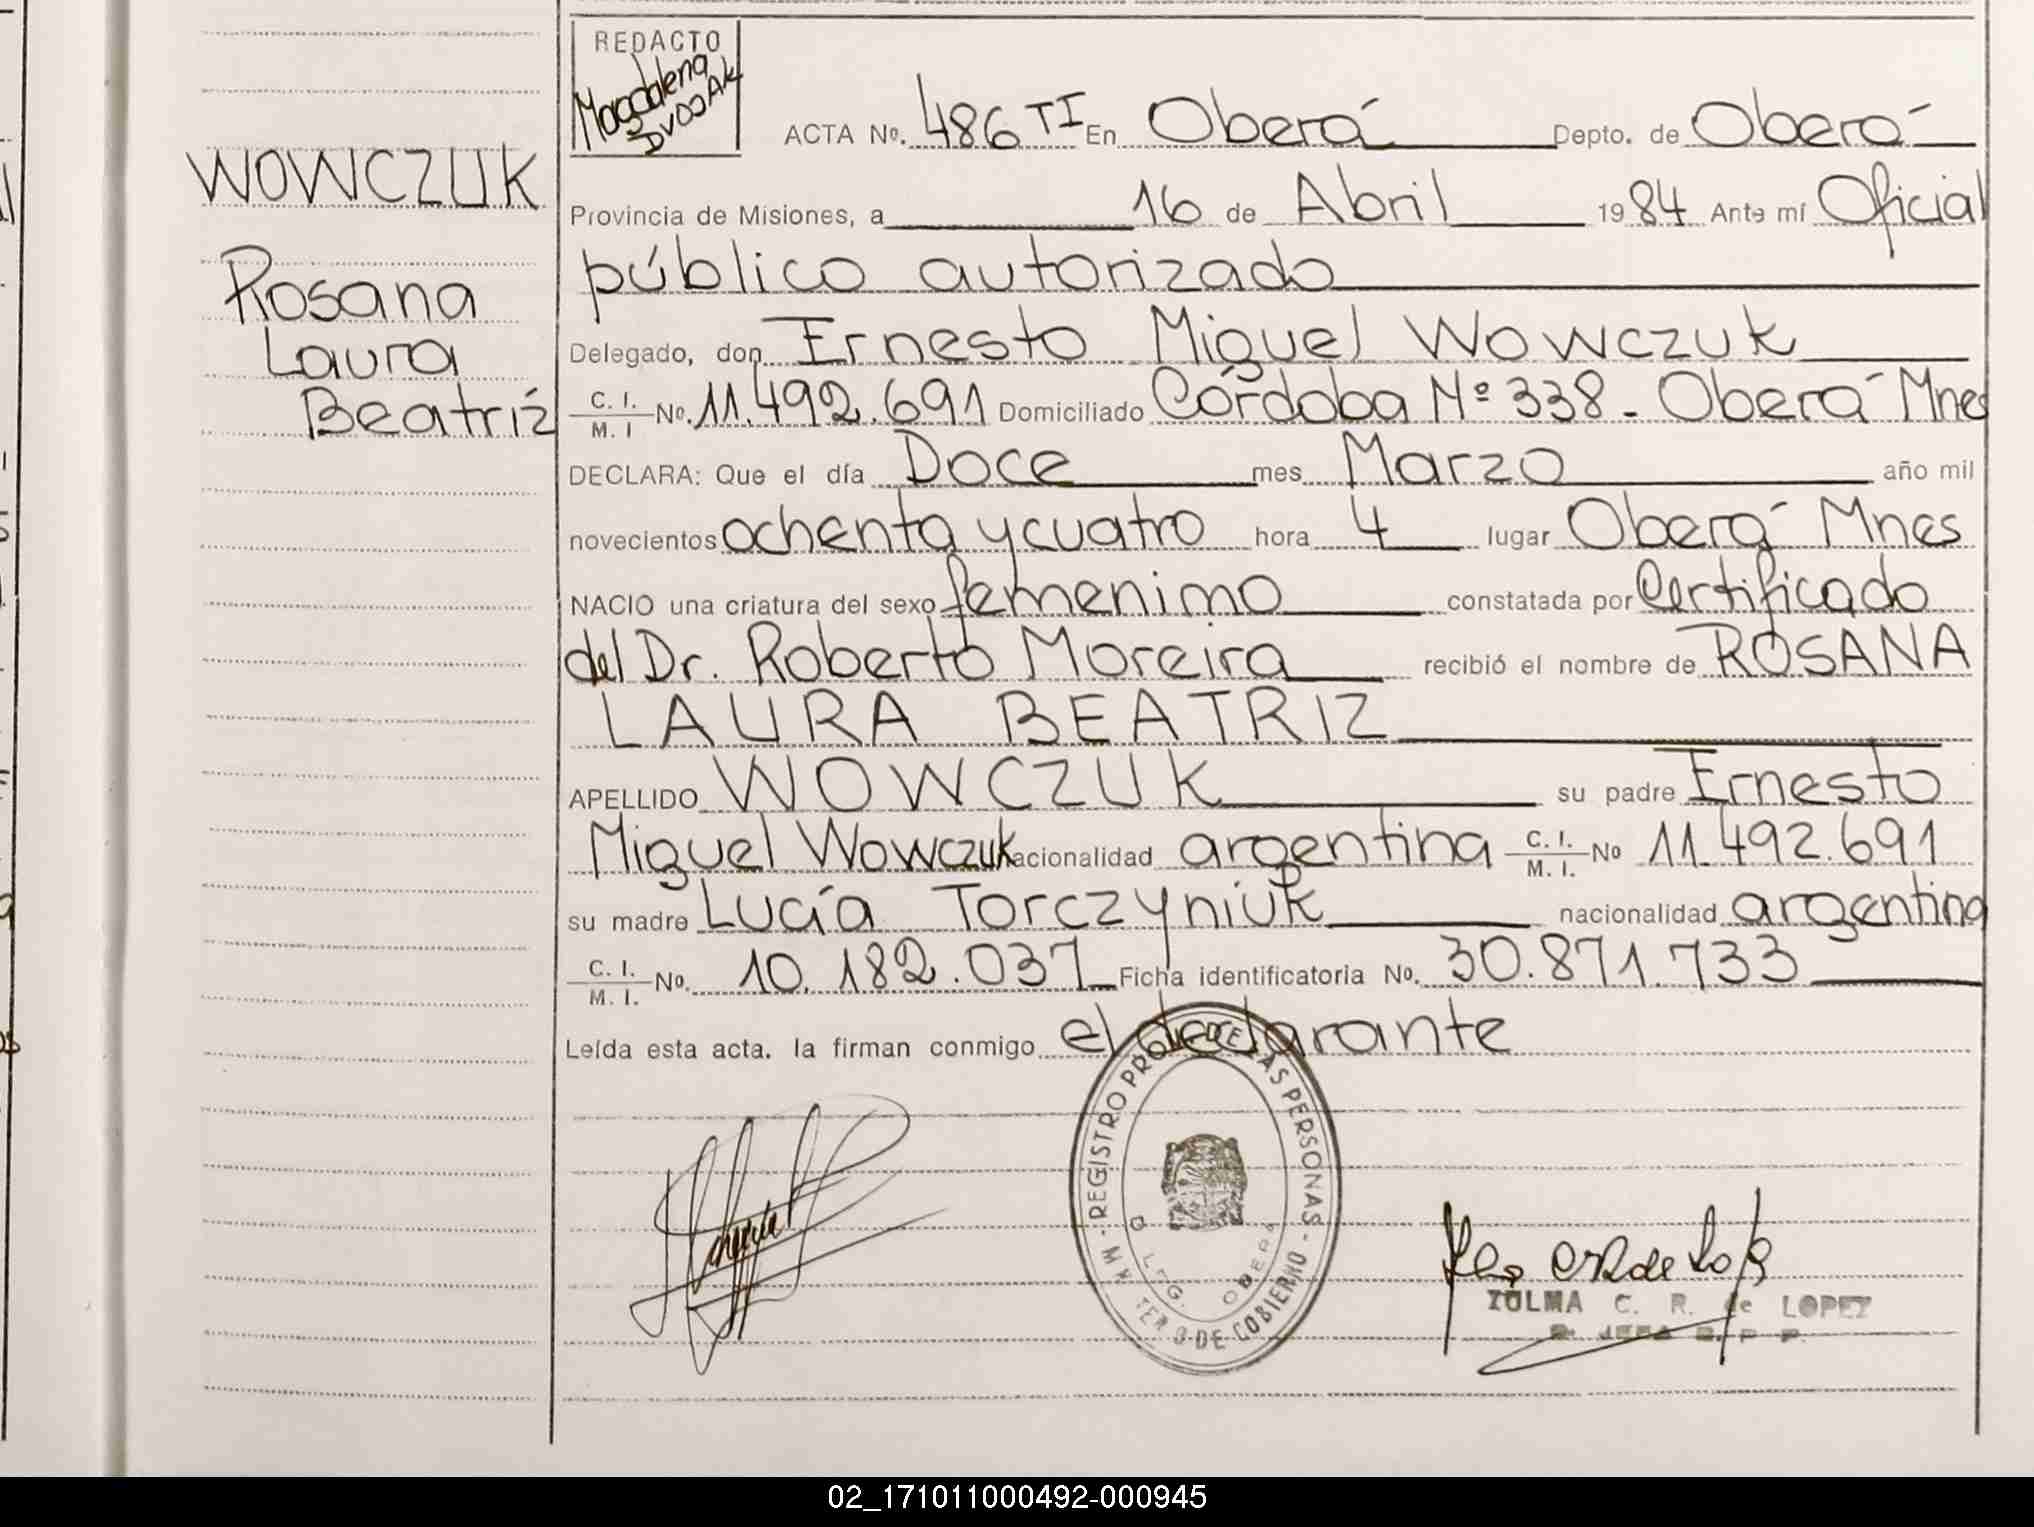 REDACTO
Magdalena
DVOJAK
WOWCZUK
Rosana
Laura
Beatriz
ACTA No. 486 TI En Oberá Depto. de Oberá
Provincia de Misiones, a 16 de Abril 1984 Ante mí Oficial
público autorizado
Delegado, don Ernesto Miguel Wowczuk
C. I. / M. I No. 11.492.691 Domiciliado Córdoba Nº 338 - Oberá Mnes
DECLARA: Que el día Doce mes Marzo año mil
novecientos ochenta y cuatro hora 4 lugar Oberá Mnes
NACIO una criatura del sexo femenino constatada por Certificado
del Dr. Roberto Moreira recibió el nombre de ROSANA
LAURA BEATRIZ
APELLIDO WOWCZUK su padre Ernesto
Miguel Wowczuk nacionalidad argentina C. I. / M. I. No 11.492.691
su madre Lucía Torczyniuk nacionalidad argentina
C. I. / M. I. No. 10.182.037 Ficha identificatoria No. 30.871.733
Leída esta acta. la firman conmigo el declarante
REGISTRO DE LAS PERSONAS
DE GOBIERNO
OBERA
ZULMA C. R. de LOPEZ
JEFA
02_171011000492-000945